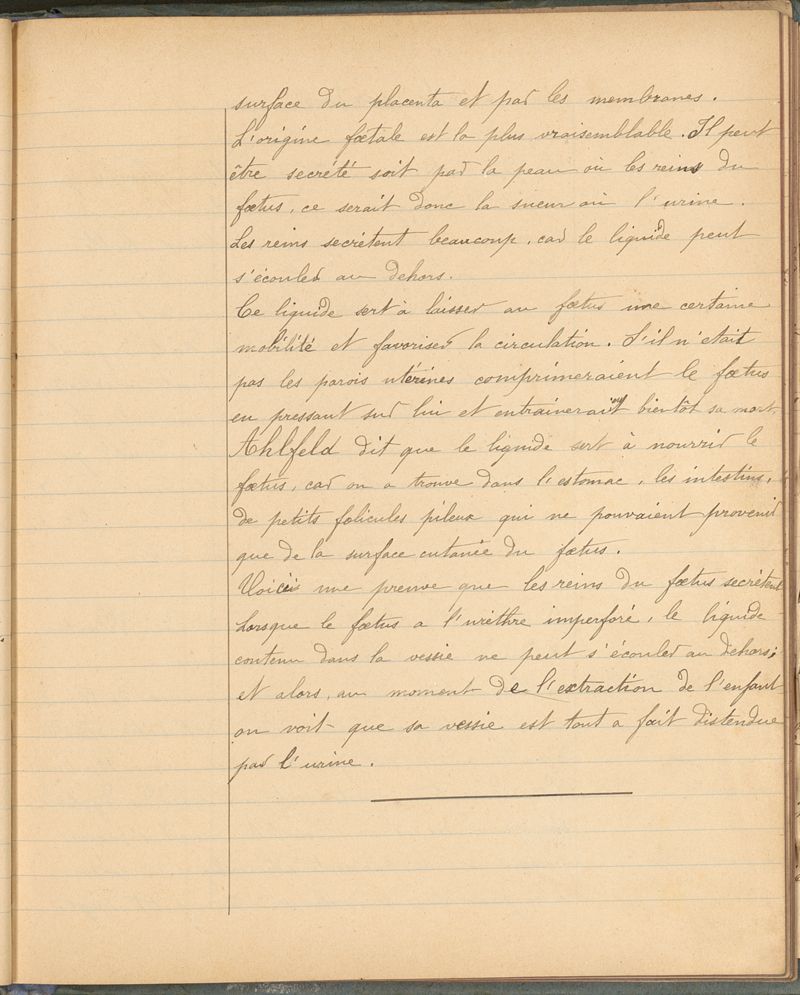 surface du placenta et par les membranes.
L'origine fœtale est la plus vraisemblable. Il peut
être secrété soit par la peau où les reins du
fœtus, ce serait donc la sueur où l'urine.
Les reins secrétent beaucoup, car le liquide peut
s'écouler au dehors.
Ce liquide sert à laisser au fœtus une certaine
mobilité et favoriser la circulation. S'il n'etait
pas les parois utérines comprimeraient le fœtus
en pressant sur lui et entraineraient bientôt sa mort.
Ahlfeld dit que le liquide sert à nourrir le
fœtus, car on a trouve dans l'estomac, les intestins,
de petits folicules pileux qui ne pouvaient provenir
que de la surface cutanée du fœtus.
Voicei une preuve que les reins du fœtus secrètent
Lorsque le fœtus a l'urèthre imperforé, le liquide
contenu dans la vessie ne peut s'écouler au dehors;
et alors, au moment de l'extraction de l'enfant
on voit que sa vessie est tout a fait distendue
par l'urine.